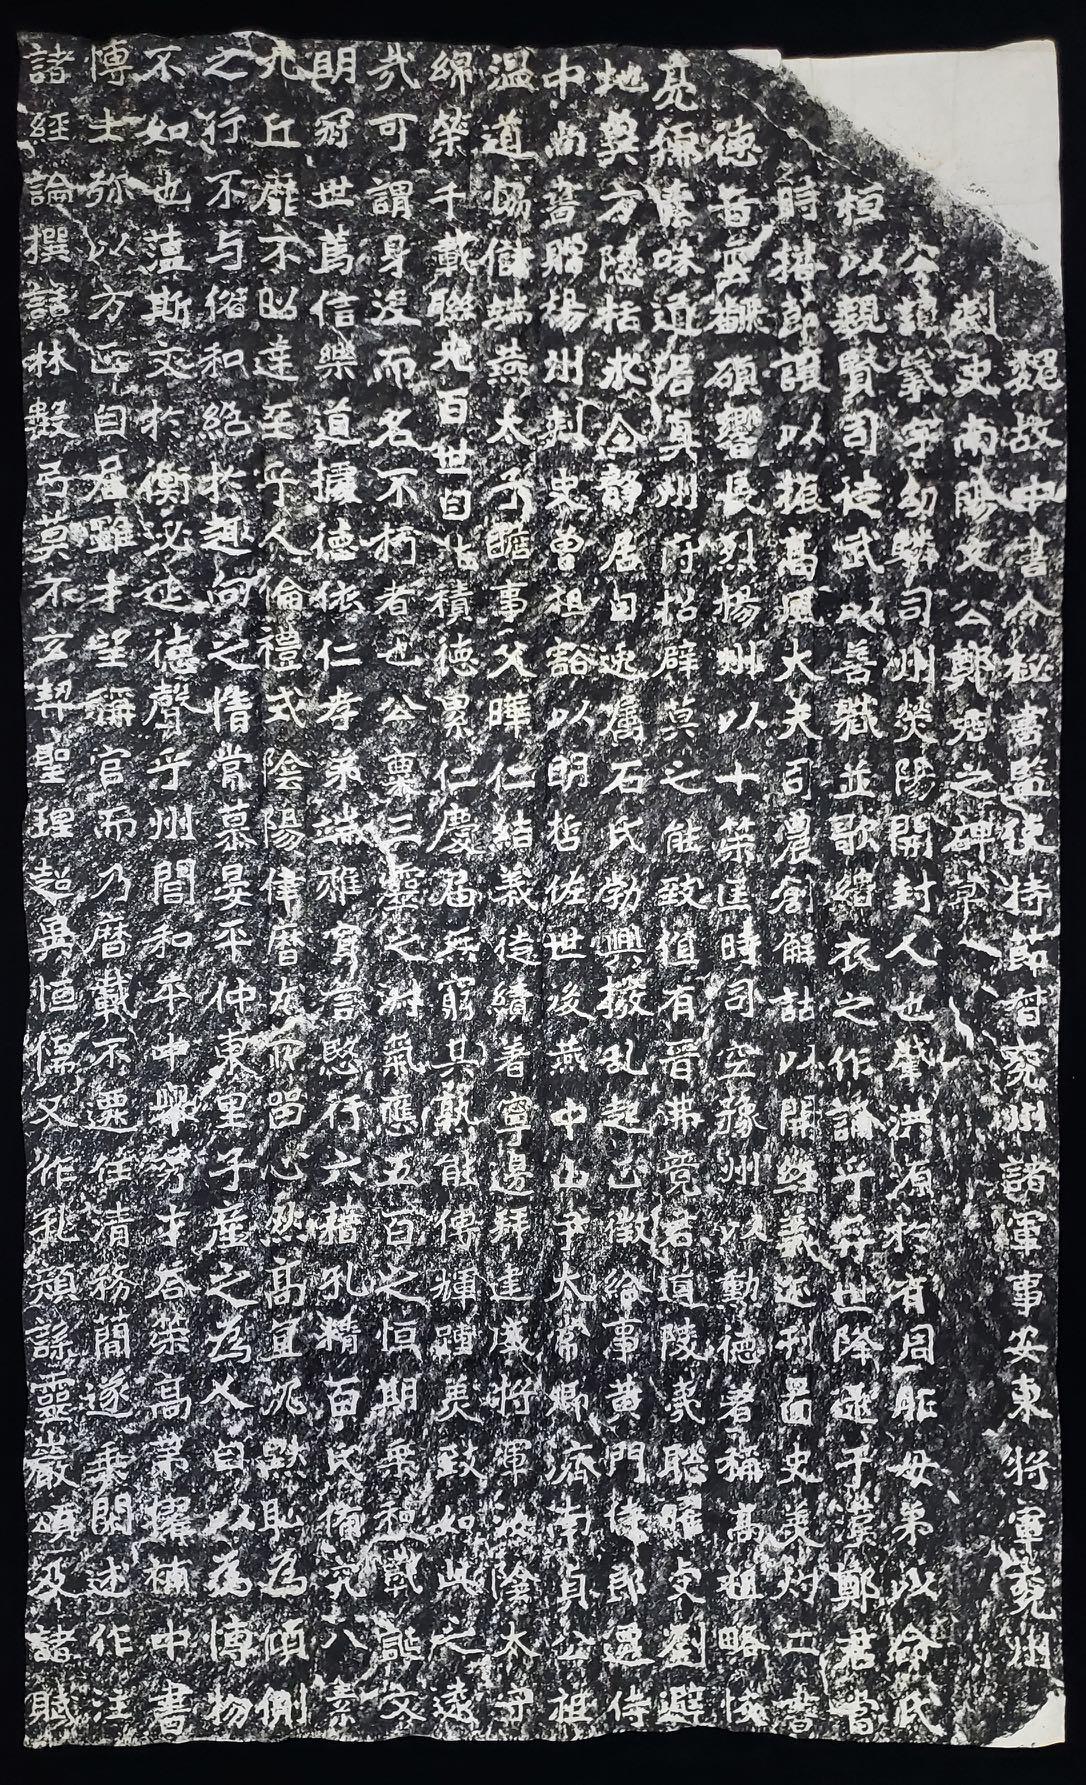 魏故中書令秘書監使持節督兗州諸軍事安東將軍兗州
刾史南陽文公鄭君之碑草
公諱羲字幼驎司州熒陽開封人也肇洪源於有周胙母弟以命氏
桓以親賢司徒武以善職並歌緇衣之作誦乎奕世降逮于漢鄭君當
時播節讓以振高風大夫司農創解詁以開經義迹刊圖史美灼二書
德音雲秘碩響長烈揚州以十策匡時司空豫州以勳德著稱高祖略恢
亮儒素味道居真州府招辟莫之能致值有晉弗競君道陵夷聰曜交劉避
地冀方隱括求全靜居自逸属石氏勃興撥乱起正徵給事黃門侍郎遷侍
中尚書贈揚州刾史曾祖豁以明哲佐世後燕中山尹太常卿濟南貞公祖
溫道協儲端燕太子瞻事父曄仁結義徒績著寧邊拜建威將軍汝陰太守
綿榮千載聯光百世自非積德累仁慶屆無窮其孰能傳輝踵美致如此之遠
哉可謂身沒而名不朽者也公稟三靈之淑氣應五百之恒期乘和載誕文
明冠世篤信樂道據德依仁孝弟端雅寡言愍行六藉孔精百氏備究八素
九丘靡不昭達至乎人倫禮式陰陽律曆尤所留心然高直沈默恥為傾側
之行不与俗和絕於趣向之情常慕晏平仲東里子產之為人自以為博物
不如也蘊斯文於衡泌延德聲乎州閭和平中舉秀才答策高第擢補中書
博士弥以方正自居雖才望稱官而乃曆載不遷任清務簡遂乘閑述作注
諸經論撰話林數弓莫不玄契聖理超異恒儒又作孔顏誄靈巖頌及諸賦